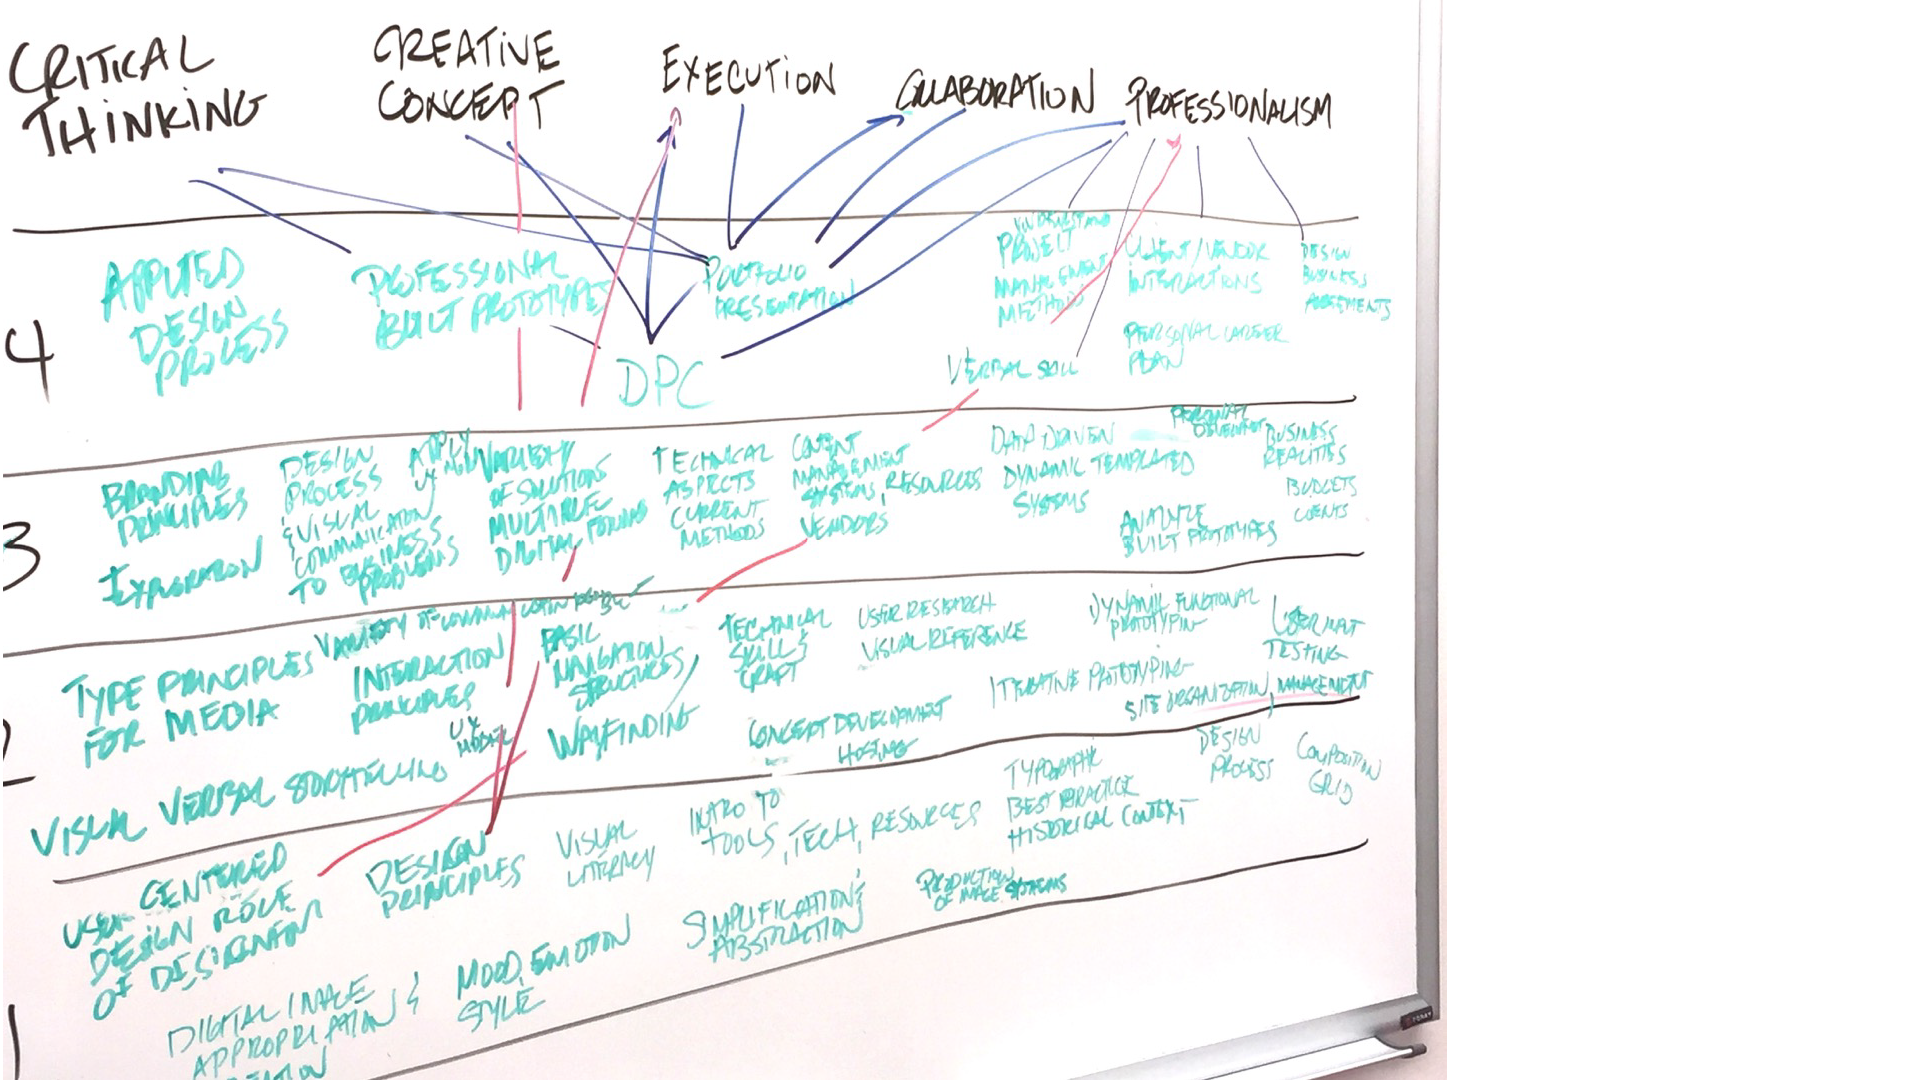 CRITICAL
THINKING
CREATIVE
CONCEPT
EXECUTION
COLLABORATION
PROFESSIONALISM
4
APPLIED
DESIGN
PROCESS
PROFESSIONAL
BUILT PROTOTYPES
PORTFOLIO
PRESENTATION
DPC
UNDERSTAND
PROJECT
MANAGEMENT
METHODS
VERBAL SKILL
CLIENT/VENDOR
INTERACTIONS
PERSONAL CAREER
PLAN
DESIGN
BUSINESS
AGREEMENTS
3
BRANDING
PRINCIPLES
EXPLORATION
DESIGN
PROCESS
& VISUAL
COMMUNICATION
TO BUSINESS
PROBLEMS
APPLY
VARIETY
OF SOLUTIONS
MULTIPLE
DIGITAL FORMS
TECHNICAL
ASPECTS
CURRENT
METHODS
CONTENT
MANAGEMENT
SYSTEMS, RESOURCES
VENDORS
DATA DRIVEN
DYNAMIC TEMPLATED
SYSTEMS
PERSONAL
ANALYZE
BUILT PROTOTYPES
BUSINESS
REALITIES
BUDGETS
CLIENTS
2
TYPE PRINCIPLES
FOR MEDIA
VISUAL VERBAL STORYTELLING
VARIETY OF
INTERACTION
PRINCIPLES
UX
MODEL
BASIC
NAVIGATION
STRUCTURES
WAYFINDING
TECHNICAL
SKILL &
CRAFT
CONCEPT DEVELOPMENT
HOSTING
USER RESEARCH
VISUAL REFERENCE
DYNAMIC FUNCTIONAL
PROTOTYPING
ITERATIVE PROTOTYPING
SITE ORGANIZATION, MANAGEMENT
USER INPUT
TESTING
1
USER CENTERED
DESIGN ROLE
OF DESIGNER
DESIGN
PRINCIPLES
VISUAL
LITERACY
INTRO TO
TOOLS, TECH, RESOURCES
TYPOGRAPHIC
BEST PRACTICE
HISTORICAL CONTEXT
DESIGN
PROCESS
COMPOSITION
GRID
DIGITAL IMAGE
APPROPRIATION &
CREATION
MOOD, EMOTION
STYLE
SIMPLIFICATION &
ABSTRACTION
PRODUCTION
OF IMAGE SYSTEMS